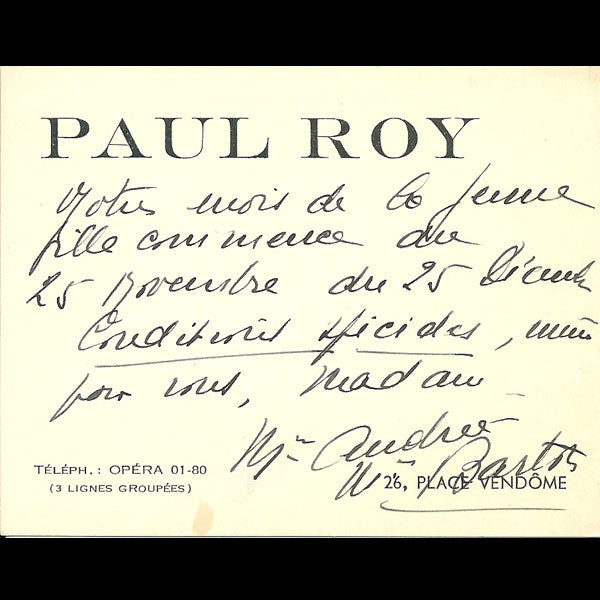 PAUL ROY
Notre mois de la jeune
fille commence du
25 Novembre au 25 Décembre
Conditions spéciales, même
pour vous, Madame
Mme Andrée
Mme Bartol
TÉLÉPH. : OPÉRA 01-80
(3 LIGNES GROUPÉES)
26, PLACE VENDÔME